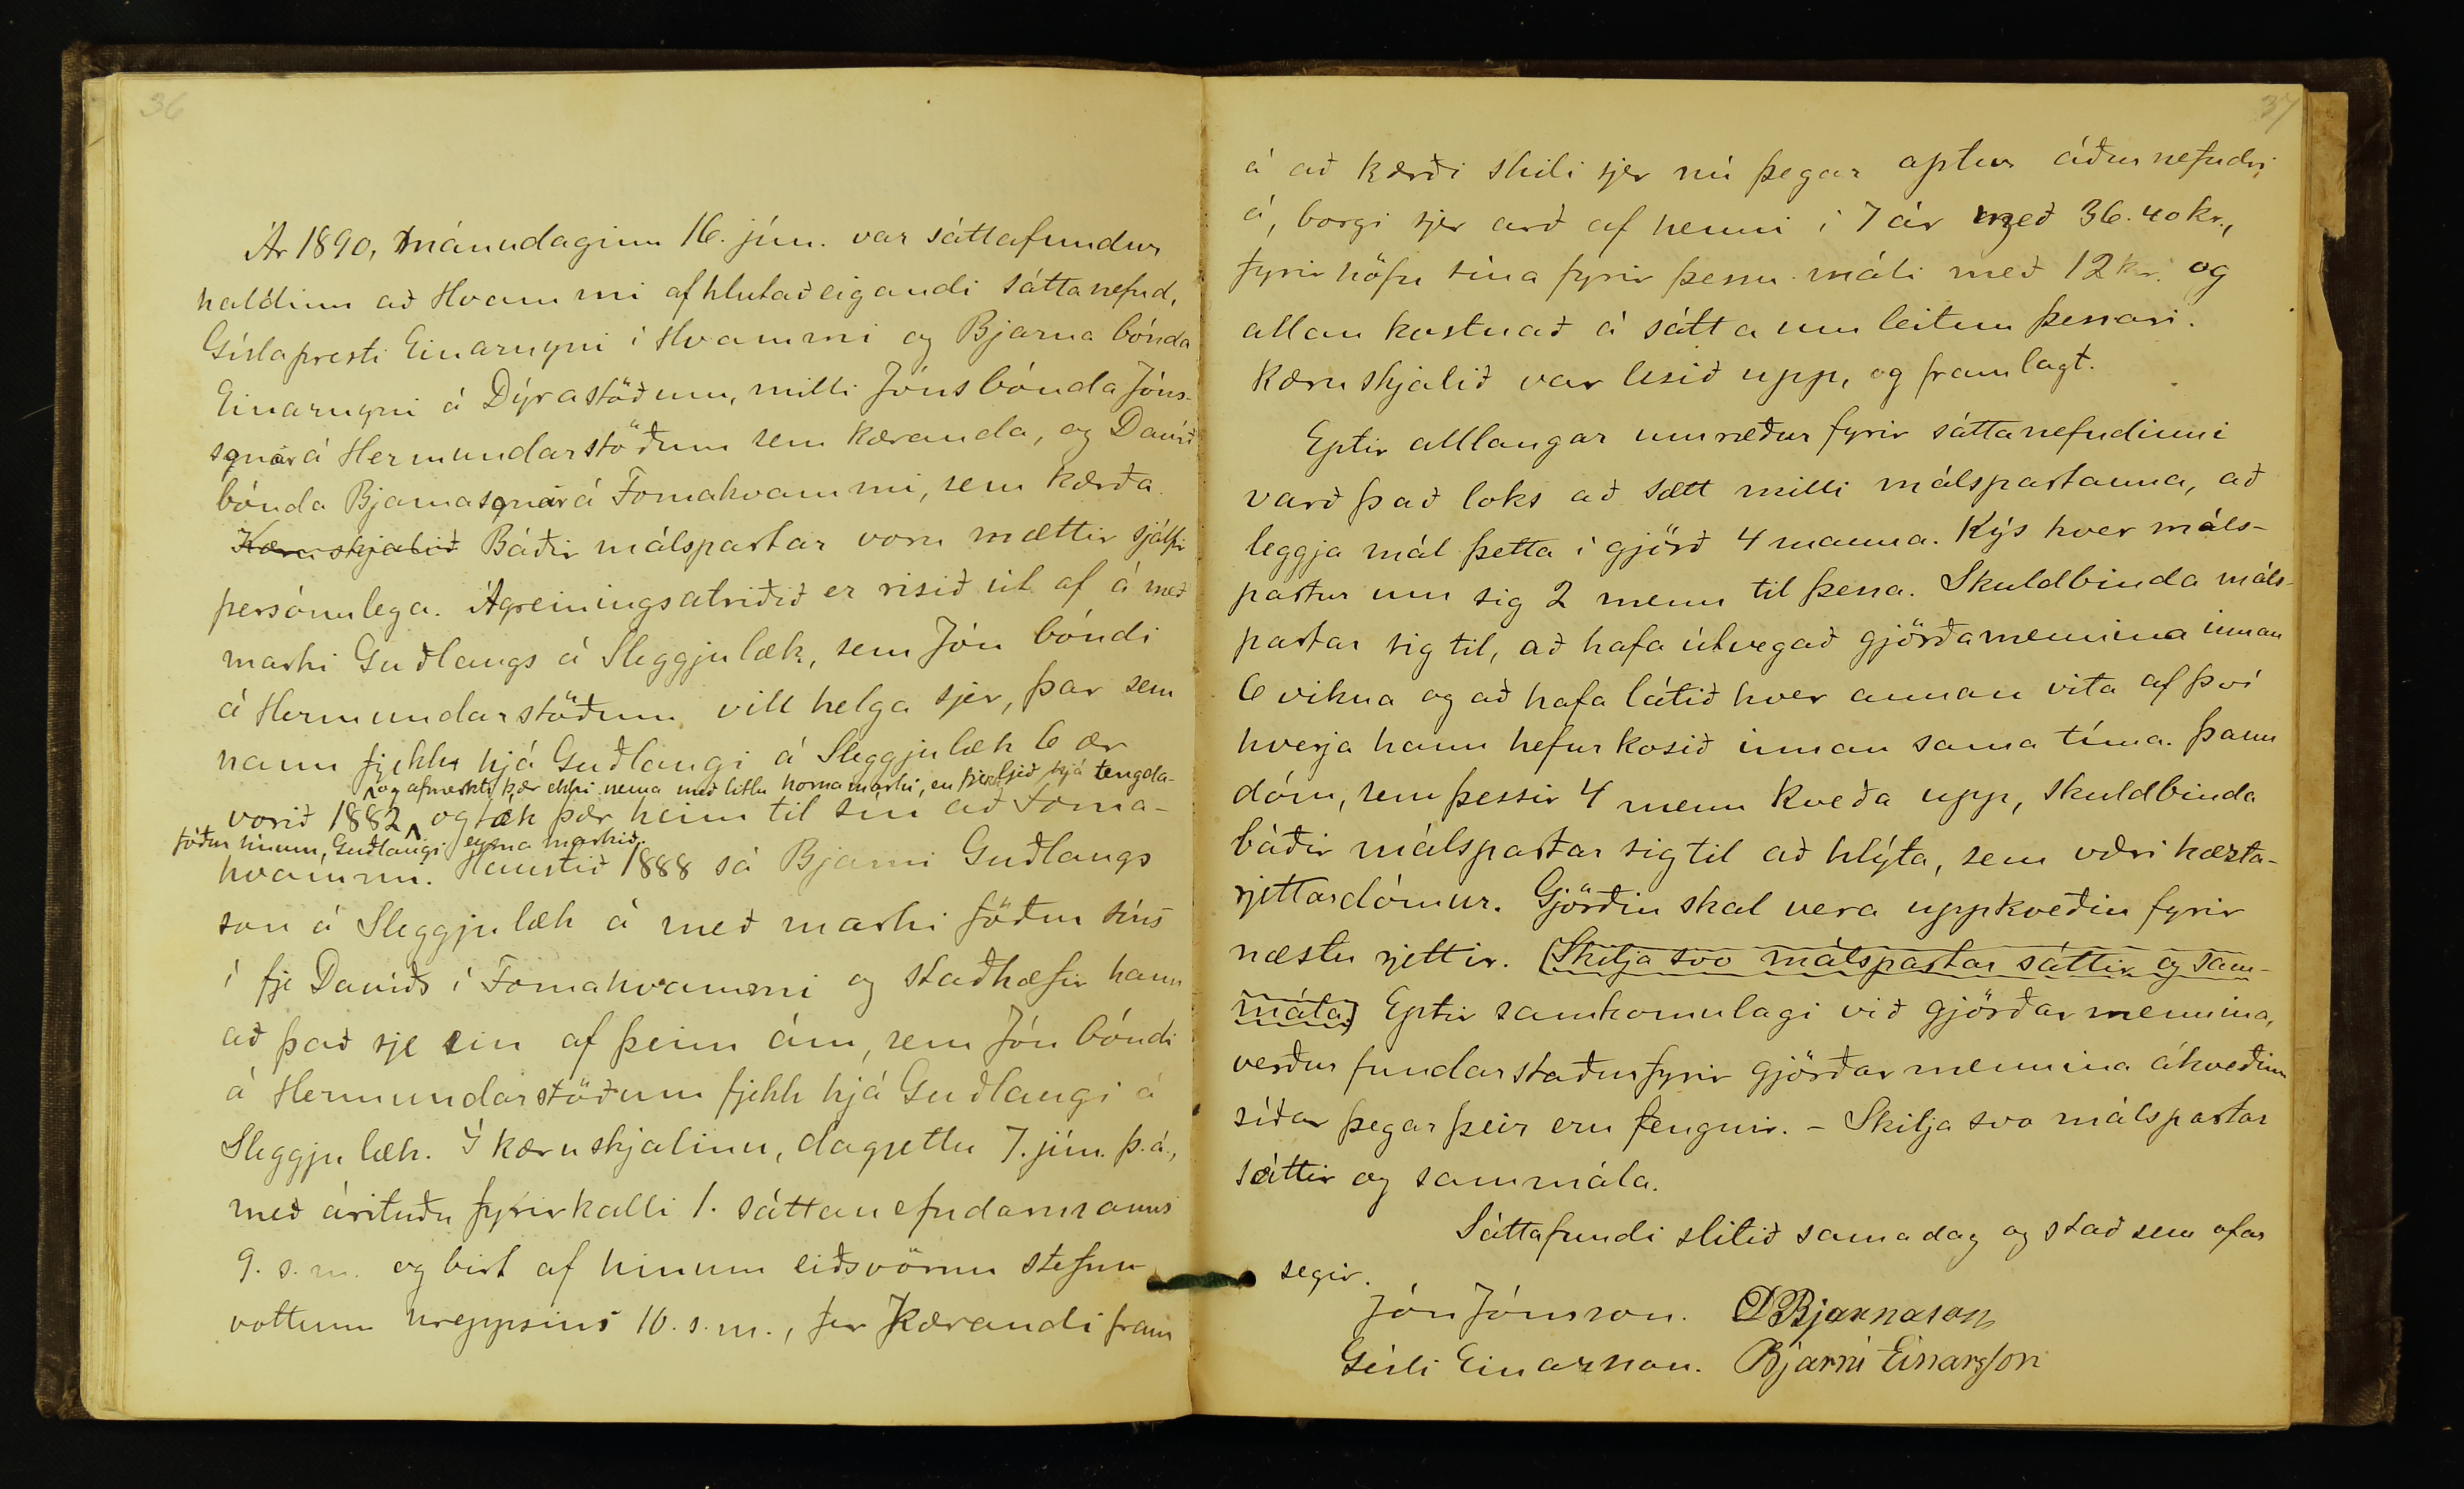 36
Ár 1890, mánudaginn 16. jún. var sáttafundur
haldinn að Hvammi af hlutaðeigandi sáttanefnd,
Gísla presti Einarssyni í Hvammi og Bjarna bónda
Einarssyni á Dýrastöðum, milli Jóns bónda Jóns-
sonar á Hermundarstöðum sem kæranda, og Davíð
bónda Bjarnasonar á Fornahvammi, sem kærða.
Kæruskjalið Báðir málspartar voru mættir sjálfir
persónulega. Ágreiningsatriðið er risið út af á með
marki Guðlaugs á Sleggjulæk, sem Jón bóndi
á Hermundarstöðum vill helga sjer, þar sem
hann fjekk hjá Guðlaugi á Sleggjulæk 6 ær
og afmerkti þær ekki nema með litlu hornamarki, en fjekk hjá tengda-
vorið 1882, og tók þær heim til sín að Forna-
föður sínum, Guðlaugi eyrnamarkið.
hvammi. Haustið 1888 sá Bjarni Guðlaugs
son á Sleggjulæk á með marki föður síns
í fje Davíðs í Fornahvammi og staðhæfir hann
að það sje ein af þeim ám, sem Jón bóndi
á Hermundarstöðum fjekk hjá Guðlaugi á
Sleggjulæk. Í kæruskjalinu, dagsettu 7. jún. þ.á.,
með árituðu fyrirkalli 1. sáttanefndarmanns
9. s. m. og birt af hinum eiðsvörnu stefnu
vottum hreppsins 10. s. m., fer kærandi fram
37
á að kærði skili sjer nú þegar aptur áðurnefndri
á, borgi sjer arð af henni í 7 ár með 36.40 kr.,
fyrirhöfn sína fyrir þessu máli með 12 kr. og
allan kostnað á sátta umleitun þessari.
Kæruskjalið var lesið upp, og framlagt.
Eptir alllangar umræður fyrir sáttanefndinni
varð það loks að sætt milli málspartanna, að
leggja mál þetta í gjörð 4 manna. Kýs hver máls-
partur um sig 2 menn til þessa. Skuldbinda máls-
partar sig til, að hafa útvegað gjörðamennina innan
6 vikna og að hafa látið hver annan vita af því
hverja hann hefur kosið innan sama tíma. Þann
dóm, sem þessir 4 menn kveða upp, skuldbinda
báðir málspartar sig til að hlýta, sem væri hæzta-
rjettardómur. Gjörðin skal vera uppkveðin fyrir
næstu rjettir. (Skilja svo málspartar sáttir og sam-
mála) Eptir samkomulagi við gjörðarmennina,
verður fundarstaður fyrir gjörðarmennina ákveðinn
síðar þegar þeir eru fengnir. - Skilja svo málspartar
sáttir og sammála.
Sáttafundi slitið sama dag og stað sem ofar
segir.
Jón Jónsson. DBjarnason
Gísli Einarsson. Bjarni Einarsson